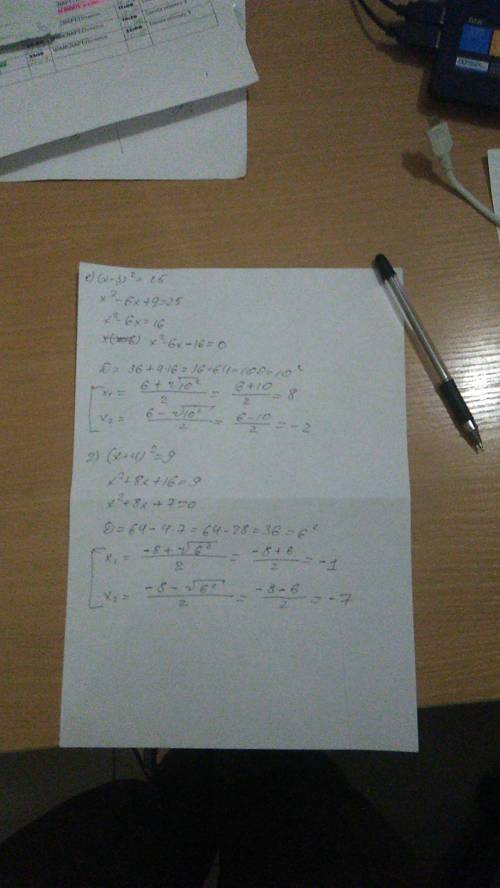 1) (x-3)²=25
x²-6x+9=25
x²-6x=16
x²-6x-16=0
D= 36+4·16=36+64=100=10²
x₁= (6+√10²)/2 = (6+10)/2 = 8
x₂= (6-√10²)/2 = (6-10)/2 = -2
2) (x+4)²=9
x²+8x+16=9
x²+8x+7=0
D=64-4·7=64-28=36=6²
x₁= (-8+√6²)/2 = (-8+6)/2 = -1
x₂= (-8-√6²)/2 = (-8-6)/2 = -7